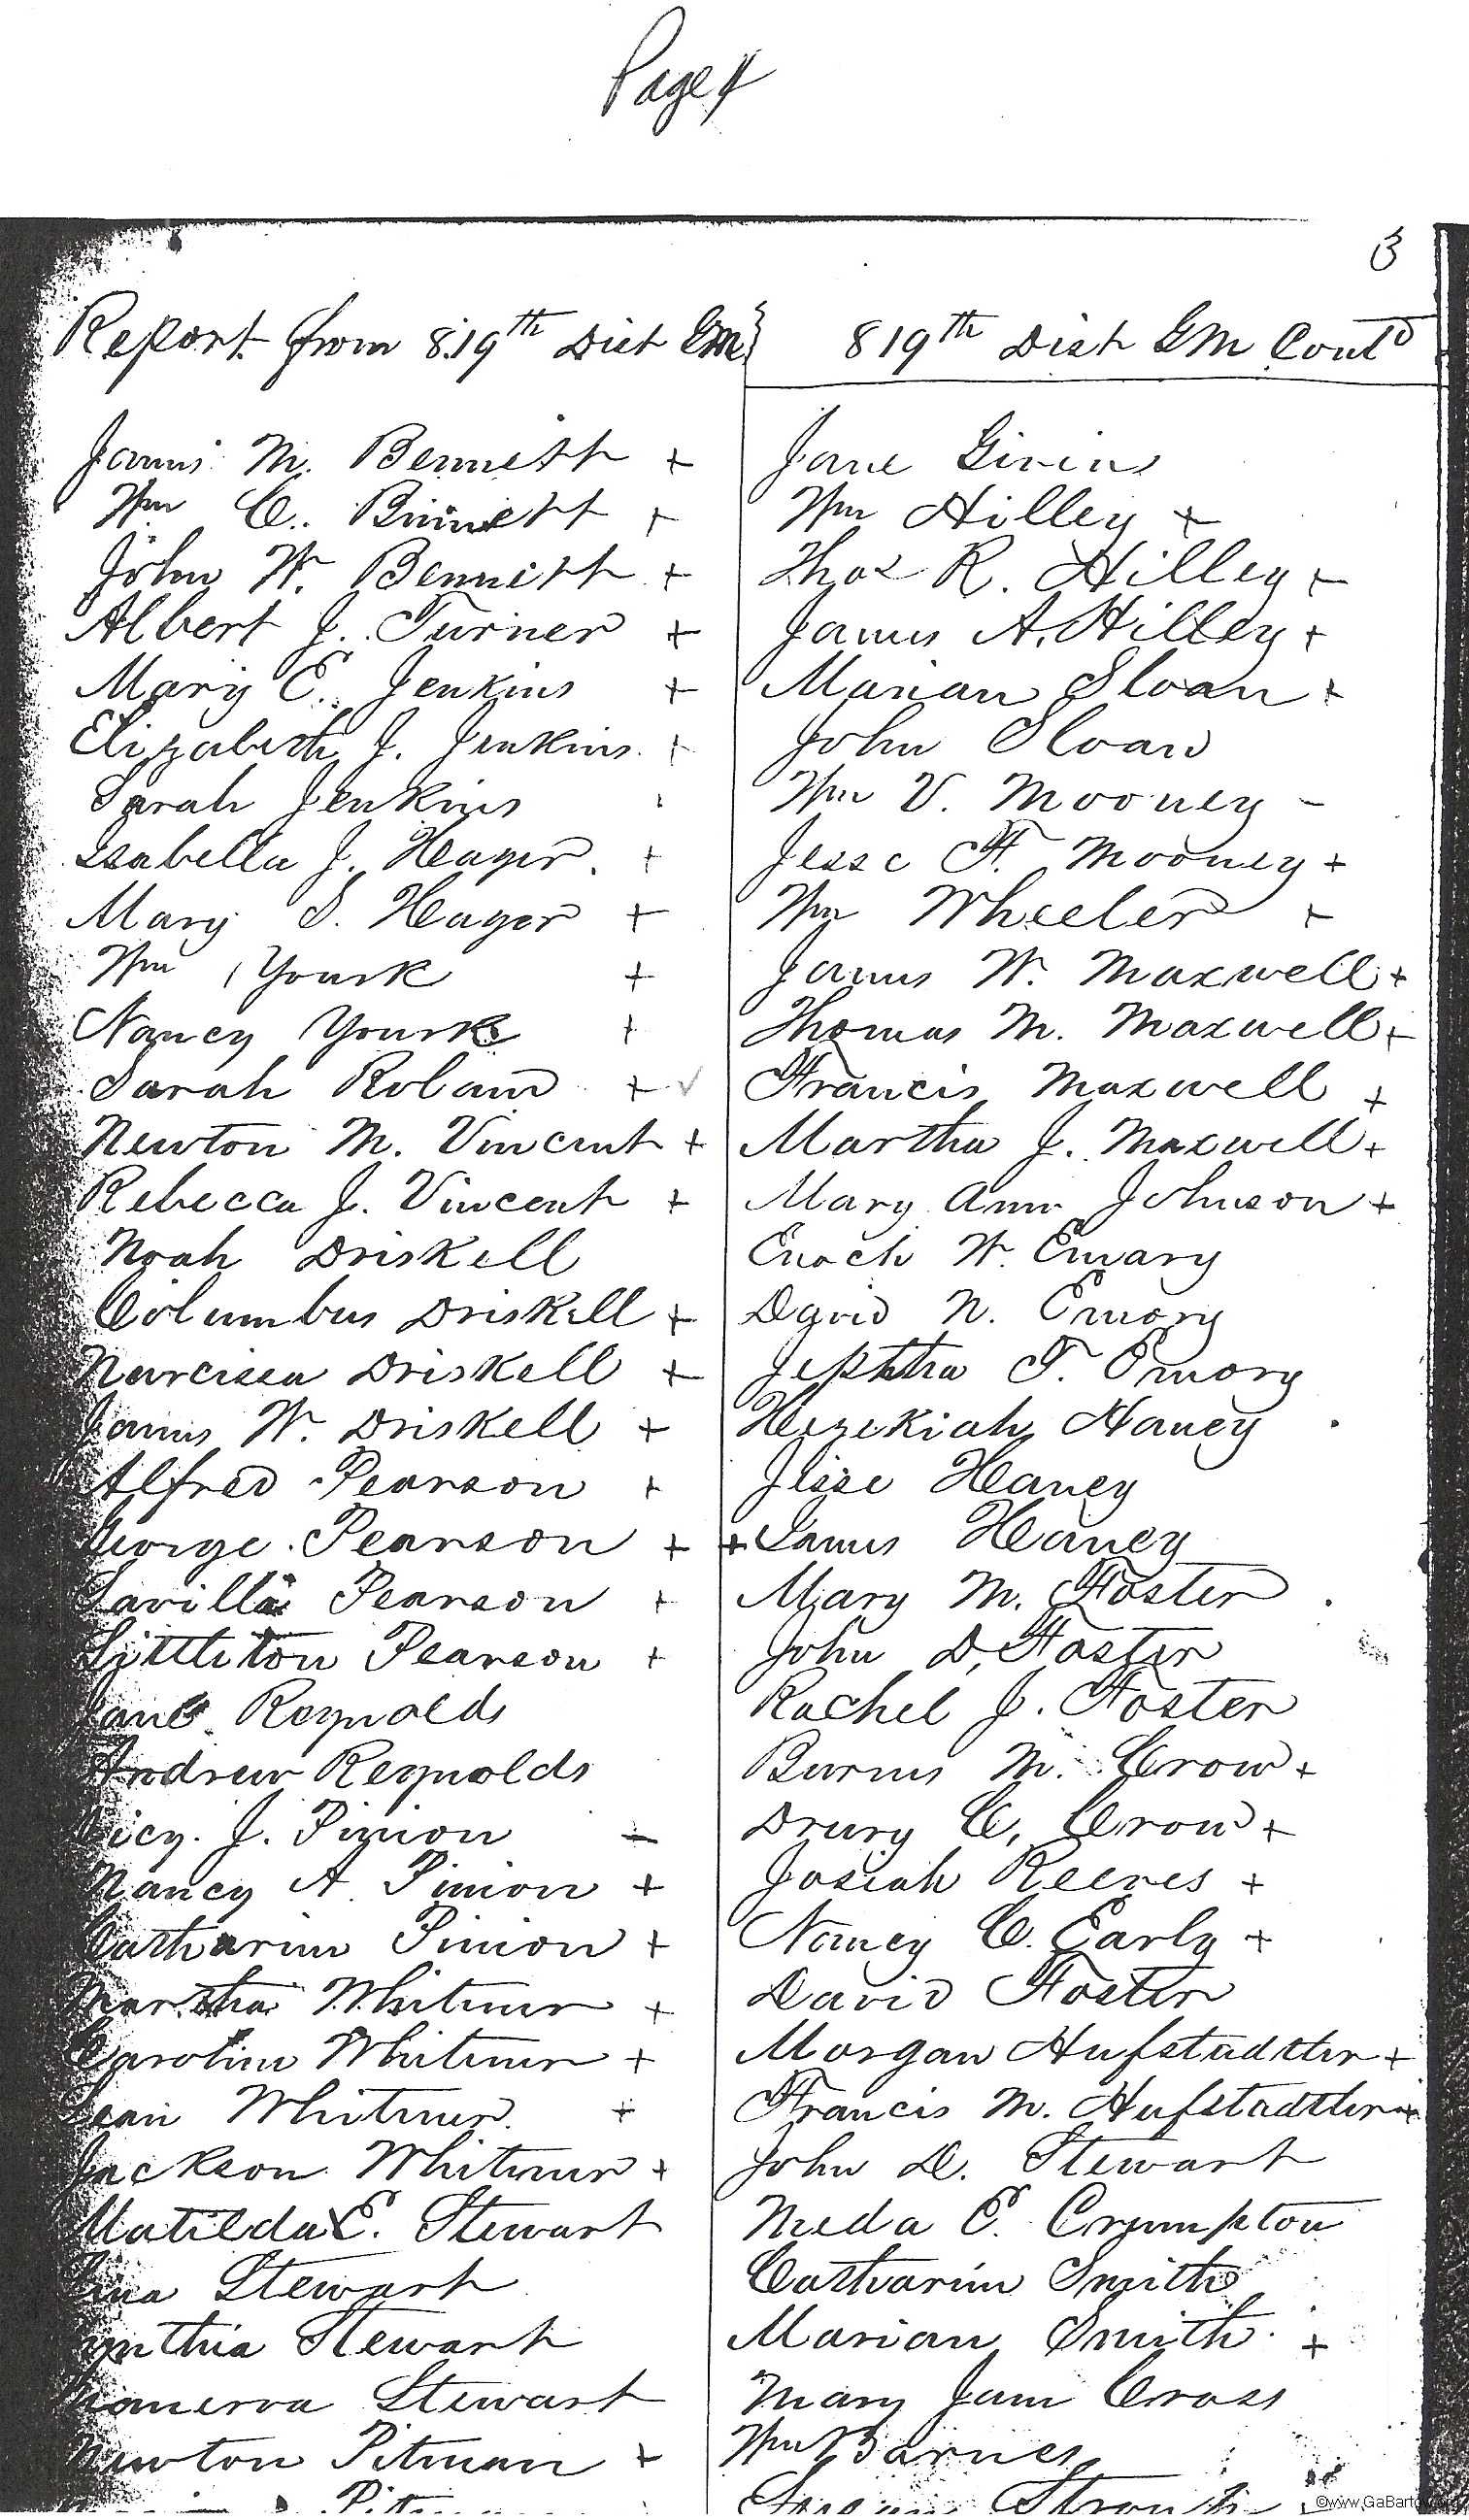 Page 4
3
Report from 819th Dist GM
James M. Bennett +
Wm C. Binnett +
John W. Bennett +
Albert J. Turner +
Mary E. Jenkins +
Elizabeth J. Jenkins +
Sarah Jenkins
Isabella J. Hager +
Mary S. Hager +
Wm Yourk +
Nancy Yourk +
Sarah Roland + ✓
Newton M. Vincent +
Rebecca J. Vincent +
Noah Driskell
Columbus Driskell +
Narcissa Driskell +
James W. Driskell +
Alfred Pearson +
George Pearson +
Savilla Pearson +
Littleton Pearson +
Jane Reynolds
Andrew Reynolds
Dicy J. Pinion -
Nancy A Pinion +
Catharine Pinion +
Martha Whitmer +
Caroline Whitmer +
Whitmer +
Jackson Whitmer +
Matilda E. Stewart
Stewart
Cynthia Stewart
Manerva Stewart
Newton Pitman +
Pitman
819th Dist GM Contd
Jane Givins
Wm Hilley +
Thos R. Hilley +
James A. Hilley +
Marian Sloan +
John Sloan
Wm V. Mooney -
Jesse F. Mooney +
Wm Wheeler +
James W. Maxwell +
Thomas M. Maxwell +
Francis Maxwell +
Martha J. Maxwell +
Mary Ann Johnson +
Enoch W. Emary
David N. Emory
Jephtha T. Emory
Hezekiah Haney
Jesse Haney
+ James Haney
Mary M. Foster
John D. Foster
Rachel J. Foster
Burns M. Crow +
Drury C. Crow +
Josiah Reeves +
Nancy C. Early +
David Foster
Morgan Hufstadtler +
Francis M. Hufstadtler +
John D. Stewart
Neda E. Crumpton
Catharine Smith
Marian Smith +
Mary Jane Cross
Wm Barnes
©www.GaBartow.org